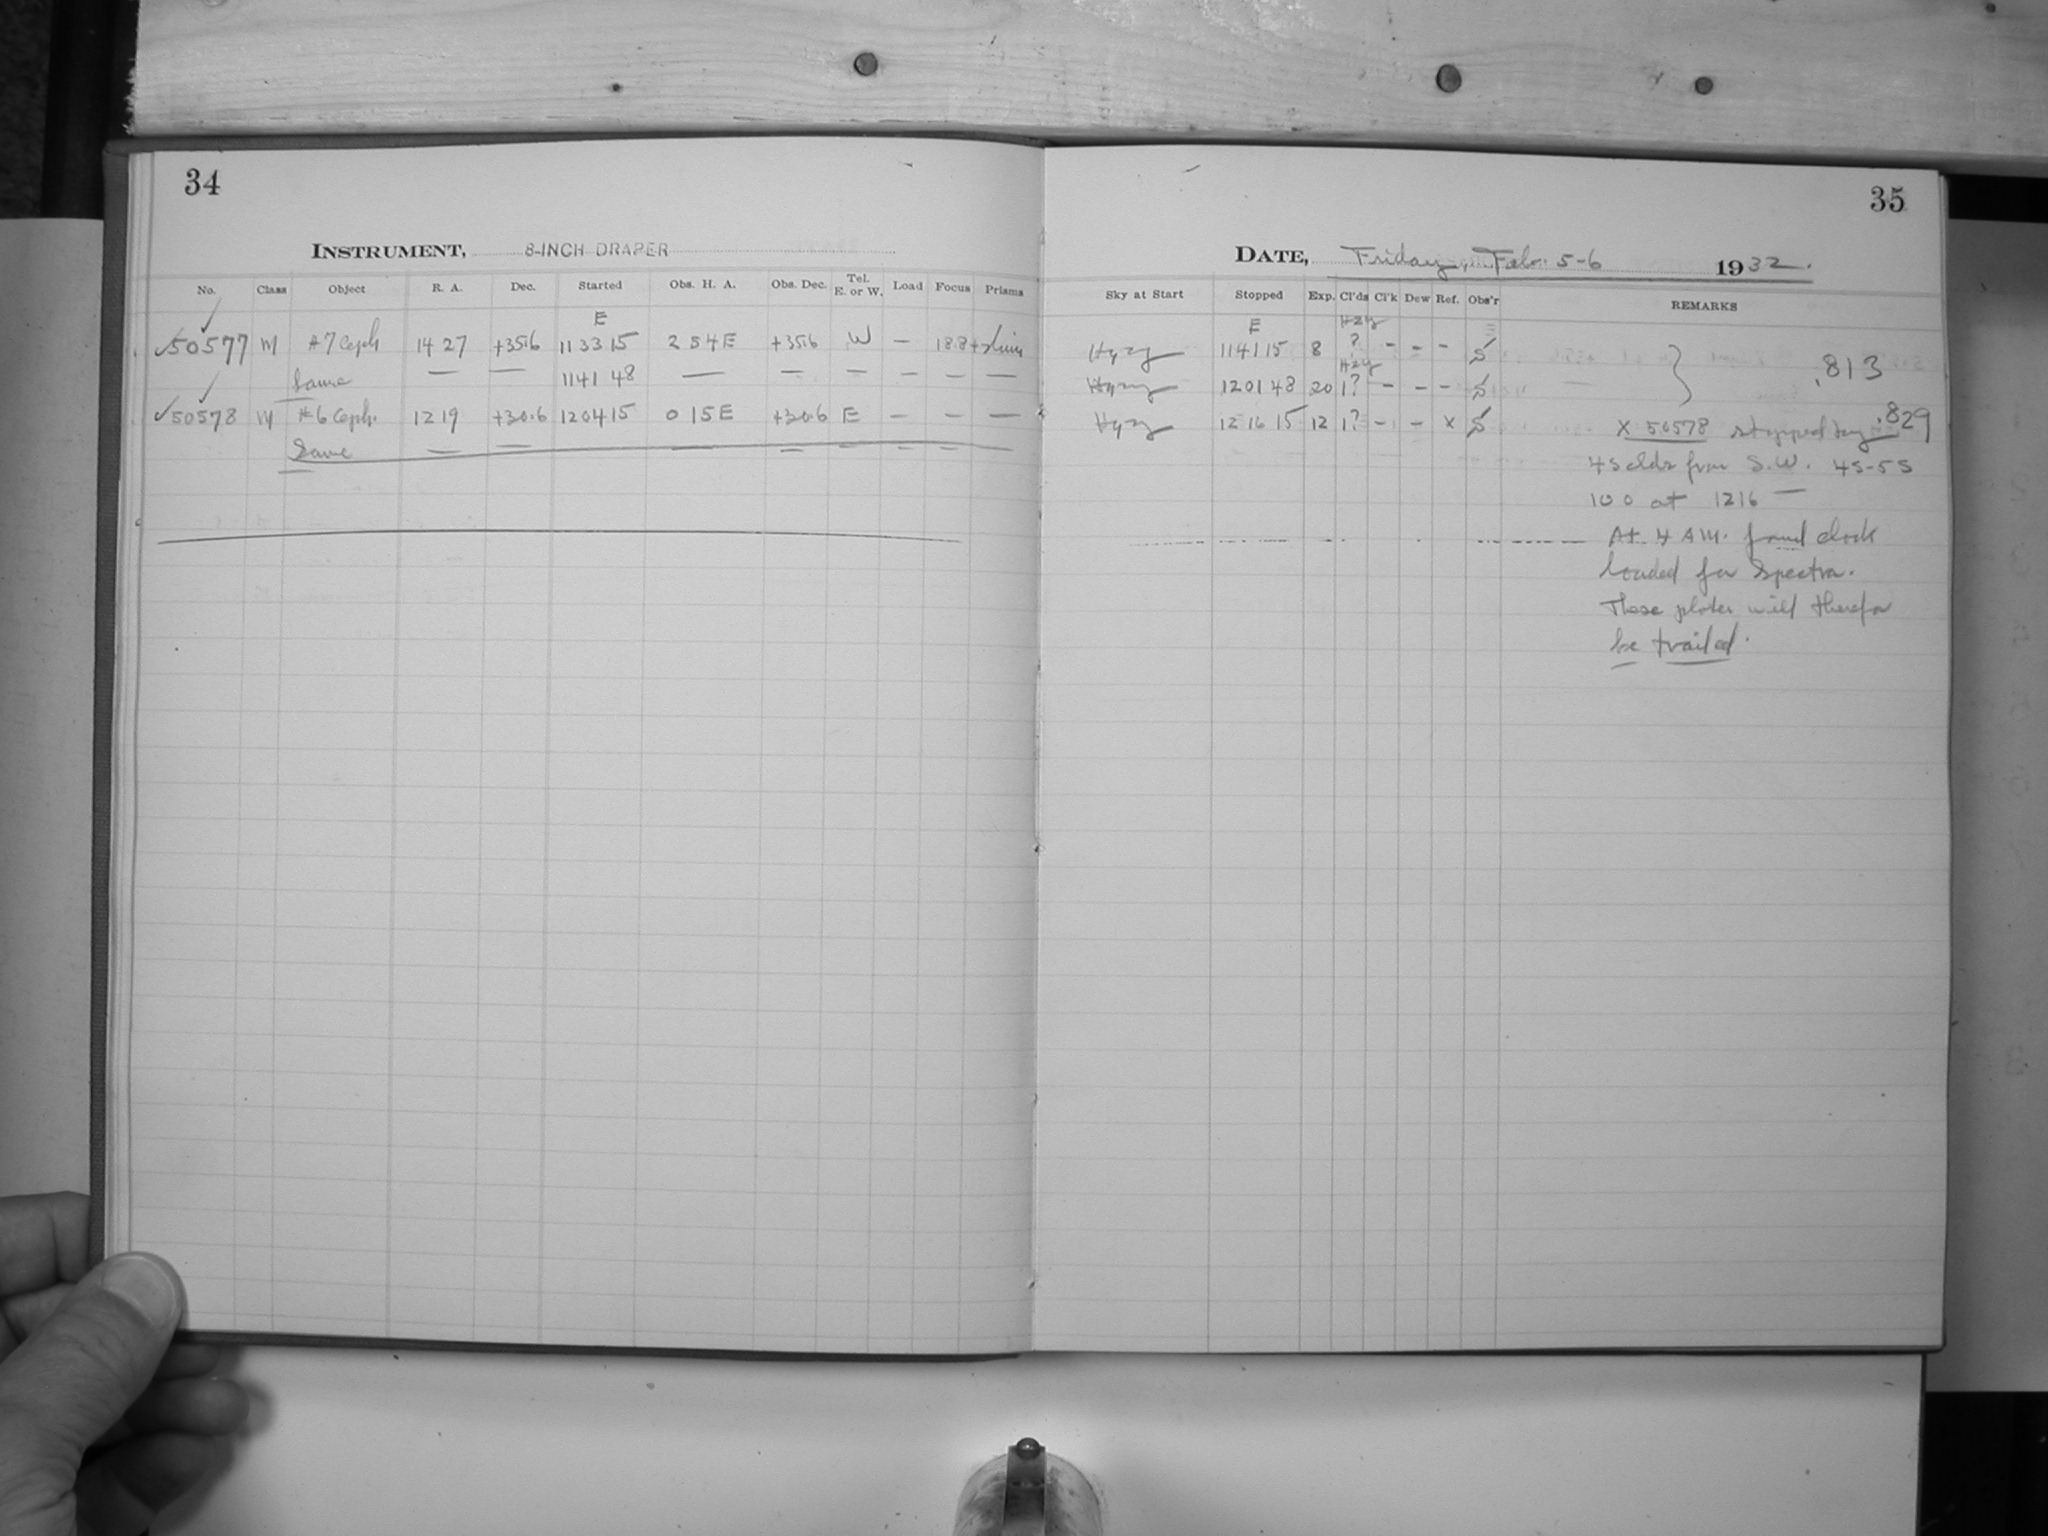 34
INSTRUMENT, 8-INCH DRAPER
No. Class Object R. A. Dec. Started Obs. H. A. Obs. Dec. Tel. E. or W. Load Focus Prisms
E
50577 M #7 Ceph 14 27 +35.6 11 33 15 2 54 E +35.6 W — 18.8+
Same — — 11 41 48 — — — — — —
50578 M #6 Ceph. 12 19 +30.6 12 04 15 0 15 E +30.6 E — — —
Same — — — — — — — —
35
DATE, Friday, Feb. 5-6 1932.
Sky at Start Stopped Exp. Cl'ds Cl'k Dew Ref. Obs'r REMARKS
E Hzy
Hyzy 11 41 15 8 ? - - - S .813
Hzy
Hyzy 12 01 48 20 1? - - - S
Hyzy 12 16 15 12 1? - - x S X 50578 stopped by .829
45 clds from S.W. 45-55
100 at 1216 —
At 4 AM. found clock
loaded for Spectra.
These plates will therefor
be trailed.